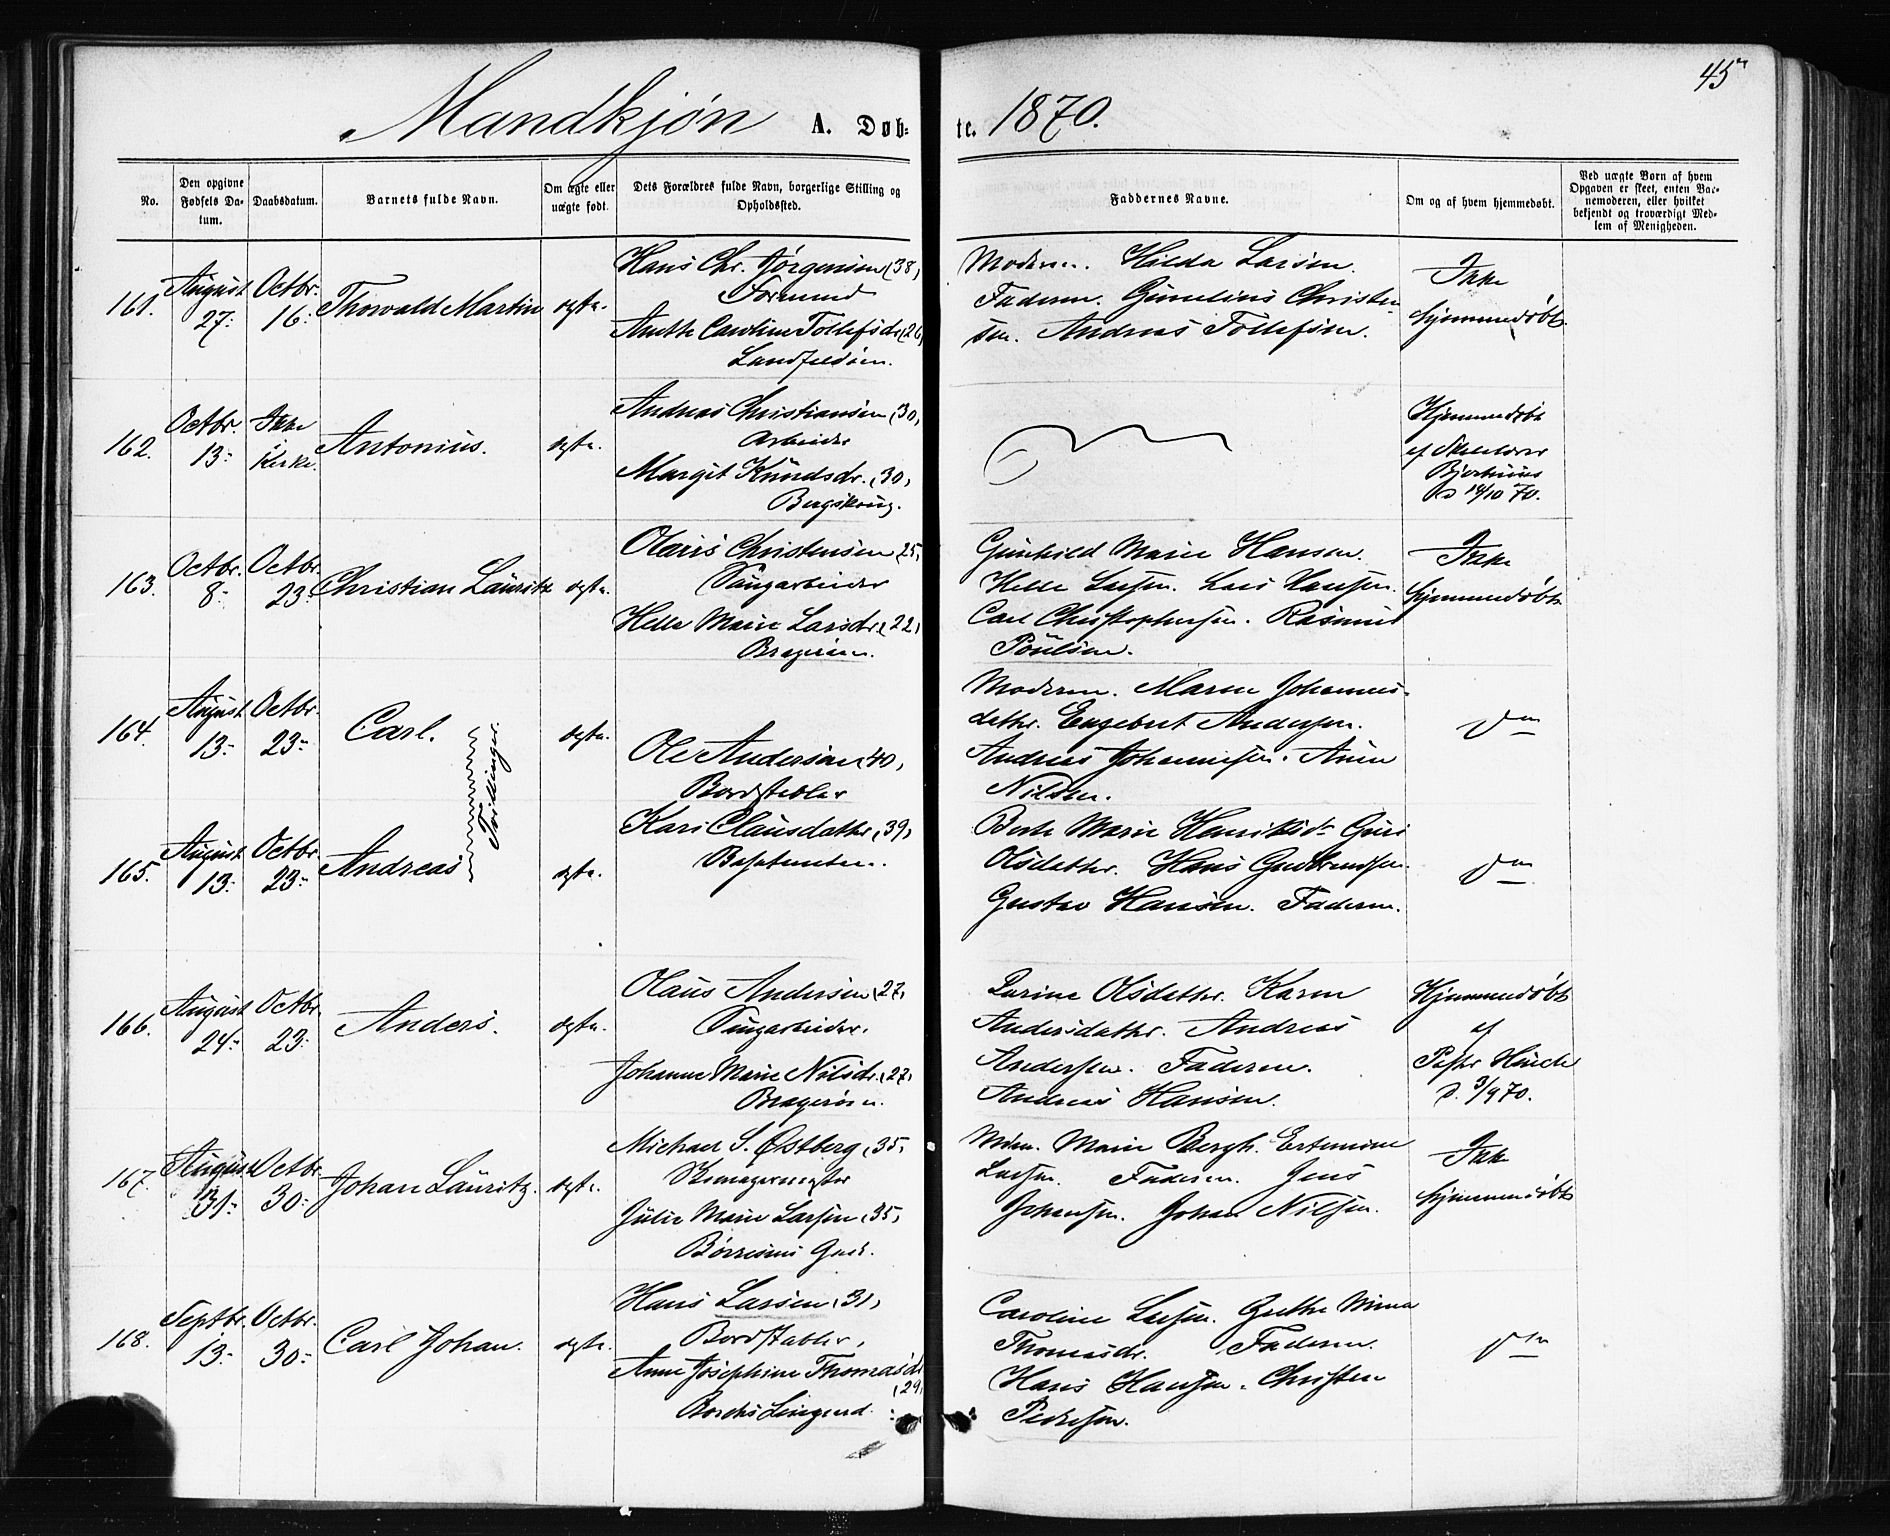 45
Mandkjøn A. Døb- te. 1870.
No.
Den opgivne Fødsels Da- tum.
Daabsdatum.
Barnets fulde Navn.
Om ægte eller uægte født.
Dets Forældres fulde Navn, borgerlige Stilling og Opholdssted.
Faddernes Navne.
Om og af hvem hjemmedøbt.
Ved uægte Børn af hvem Opgaven er skeet, enten Bar- nemoderen, eller hvilket bekjendt og troværdigt Med- lem af Menigheden.
161. August 27. Octbr. 16. Thorvald Martin ægte.
Hans Chr. Jørgensen (38)
Formand
Anethe Caroline Tollefsdr (26)
Landfaldøen.
Moderen. Hilda Larsen.
Faderen. Christen-
sen. Andreas Tollefsen.
Ikke
hjemmedøbt.
162. Octbr. 13. Ikke i Kirke. Antonius. ægte.
Andreas Christiansen (30)
Arbeider
Margit Knudsdr. (30)
Bergskoug.
Hjemmedøbt
af
D 14/10 70.
163. Octbr. 8. Octbr. 23. Christian Lauritz ægte.
Olaus Christensen (25)
Saugarbeider
Helle Marie Larsdr. (22)
Bragerøen.
Gunhild Marie Hansen.
Helle Larsen. Lars Hansen.
Carl Christophersen. Rasmus
Poulsen.
Ikke
hjemmedøbt.
164. August 13. Octbr. 23. Carl. ægte.
Tvillinger.
Ole Andersen (40)
Bordstabler
Kari Clausdatter (39)
Moderen. Maren Johannes-
datter. Engebret Andersen.
Andreas Johannesen. Anne
Nilsen.
Do
165. August 13. Octbr. 23. Andreas ægte.
Berte Marie Henriksdr Guri
Olsdatter. Hans Gudbrandsen.
Gustav Hansen. Faderen.
Do
166. August 24. Octbr. 23. Anders. ægte.
Olaus Andersen (27)
Saugarbeider.
Johanne Marie Nilsdr. (27)
Bragerøen.
Olsdatter. Karen
Andersdatter. Andreas
Andersen. Faderen.
Andreas Hansen.
Hjemmedøbt
af
D. 3/9 70.
167. August 31. Octbr. 30. Johan Lauritz. ægte.
Michael S. Østberg (35)
Skomagermester
Julie Marie Larsen (35)
Børresens Gade.
Mdm. Marie Bergh. Ertemine
Larsen. Faderen. Jens
Johansen. Johan Nilsen.
Ikke
hjemmedøbt
168. Septbr. 13. Octbr. 30. Carl Johan. ægte.
Hans Larsen (31)
Bordstabler.
Anne Josephine Thomasdr
(29)
Caroline Larsen. Grethe Mina
Thomasdr. Faderen.
Hans Hansen. Christen
Pedersen.
Do